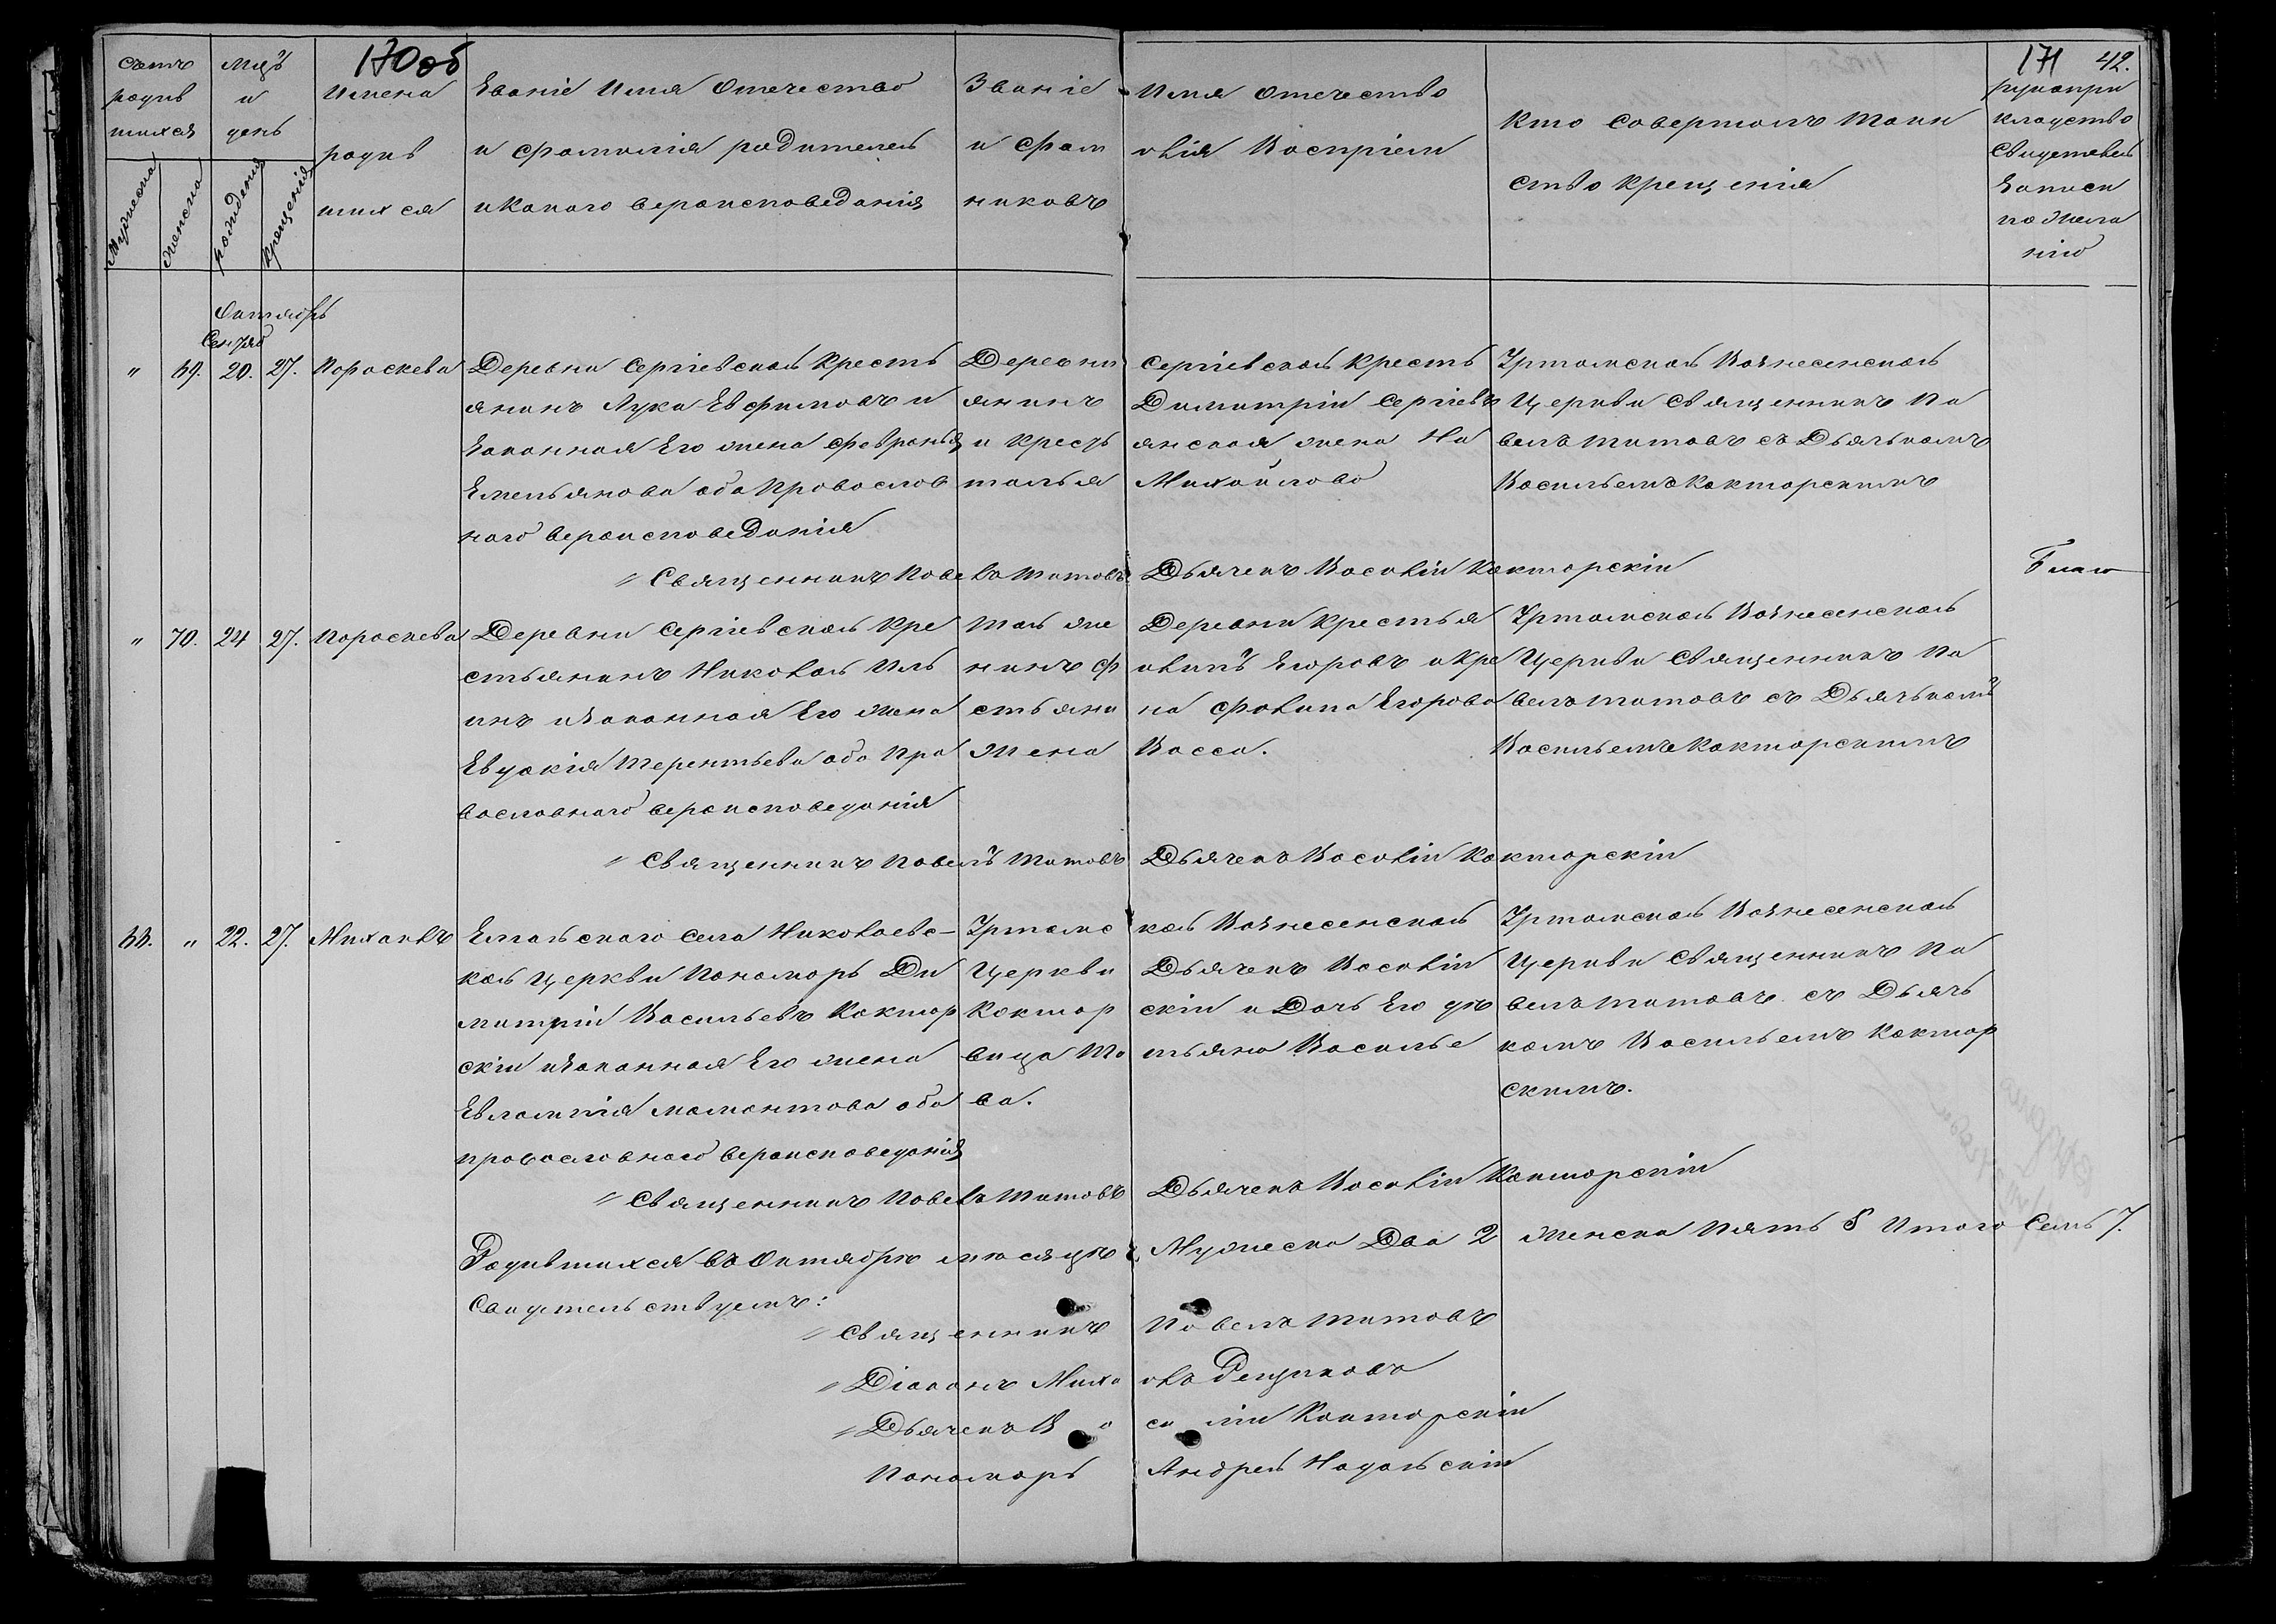 170об
171 42.
Счетъ родив шихся
Мужеска
Женска
Мцъ и день
рожденія
крещенія
Имена родив шихся
Званіе Имя Отечество и фамилія родителей и какого вероисповеданія
Званіе Имя отечество
и фам илія Воспріем
никовъ
Кто совершалъ Таин ство крещенія
рукопри кладство свидетелей записи по жела нію
Октябрь
Сентяб
" 69. 20. 27. Пораскева
Деревни Сергіевской Кресть
янинъ Лука Евфимовъ и
Законная Его жена Февронья
Емельянова оба Провослов
ного вероисповеданія
Деревни Сергіевской Кресть
янинъ Димитрій Сергіевъ
и кресть янская жена На
талья Михайлова
Уртамской Вознесенской
Церкви Священникъ Па
велъ Титовъ съ Дьячькомъ
Васильемъ Кокторскимъ
Священникъ Павелъ Титовъ Дьячекъ Василій Кокторскій
" 70. 24 27. Пораскева
Деревни Сергіевской Кре
стьянинъ Николай Иль
инъ и Законная Его жена
Евдокія Терентьева оба Пра
вославного вероисповеданія
Той же Деревни Крестья
нинъ Филипъ Егоровъ и Кре
стьяни на Филипа Егорова
жена Васса.
Уртамской Вознесенской
Церкви Священникъ Па
велъ Титовъ съ Дьячькомъ
Васильемъ Кокторскимъ
Священникъ Павелъ Титовъ Дьячекъ Василій Кокторскій
66. " 22. 27. Михаилъ
Елгайского села Николаевс-
кой Церкви Пономорь Ди
митрій Васильевъ Коктор
скій и Законная Его жена
Евлампія Мамонтова оба
провословного вероисповеданія
Уртамс кой Вознесенской
Церкви Дьячекъ Василій
Коктор скій и Дочь Его де
вица Та тьяна Василье
ва.
Уртамской Вознесенской
Церкви Священникъ Па
велъ Титовъ съ Дьячь
комъ Васильемъ Коктор
скимъ.
Священникъ Павелъ Титовъ Дьячекъ Василій Кокторскій
Родившихся въ Октябре месяце Мужеска Два 2 Женска Пять 5 Итого Семь 7.
Свидетельствуемъ:
Священникъ Павелъ Титовъ
Діаконъ Миха илъ Рещиковъ
Дьячекъ Ва силій Кокторскій
Пономорь Андрей